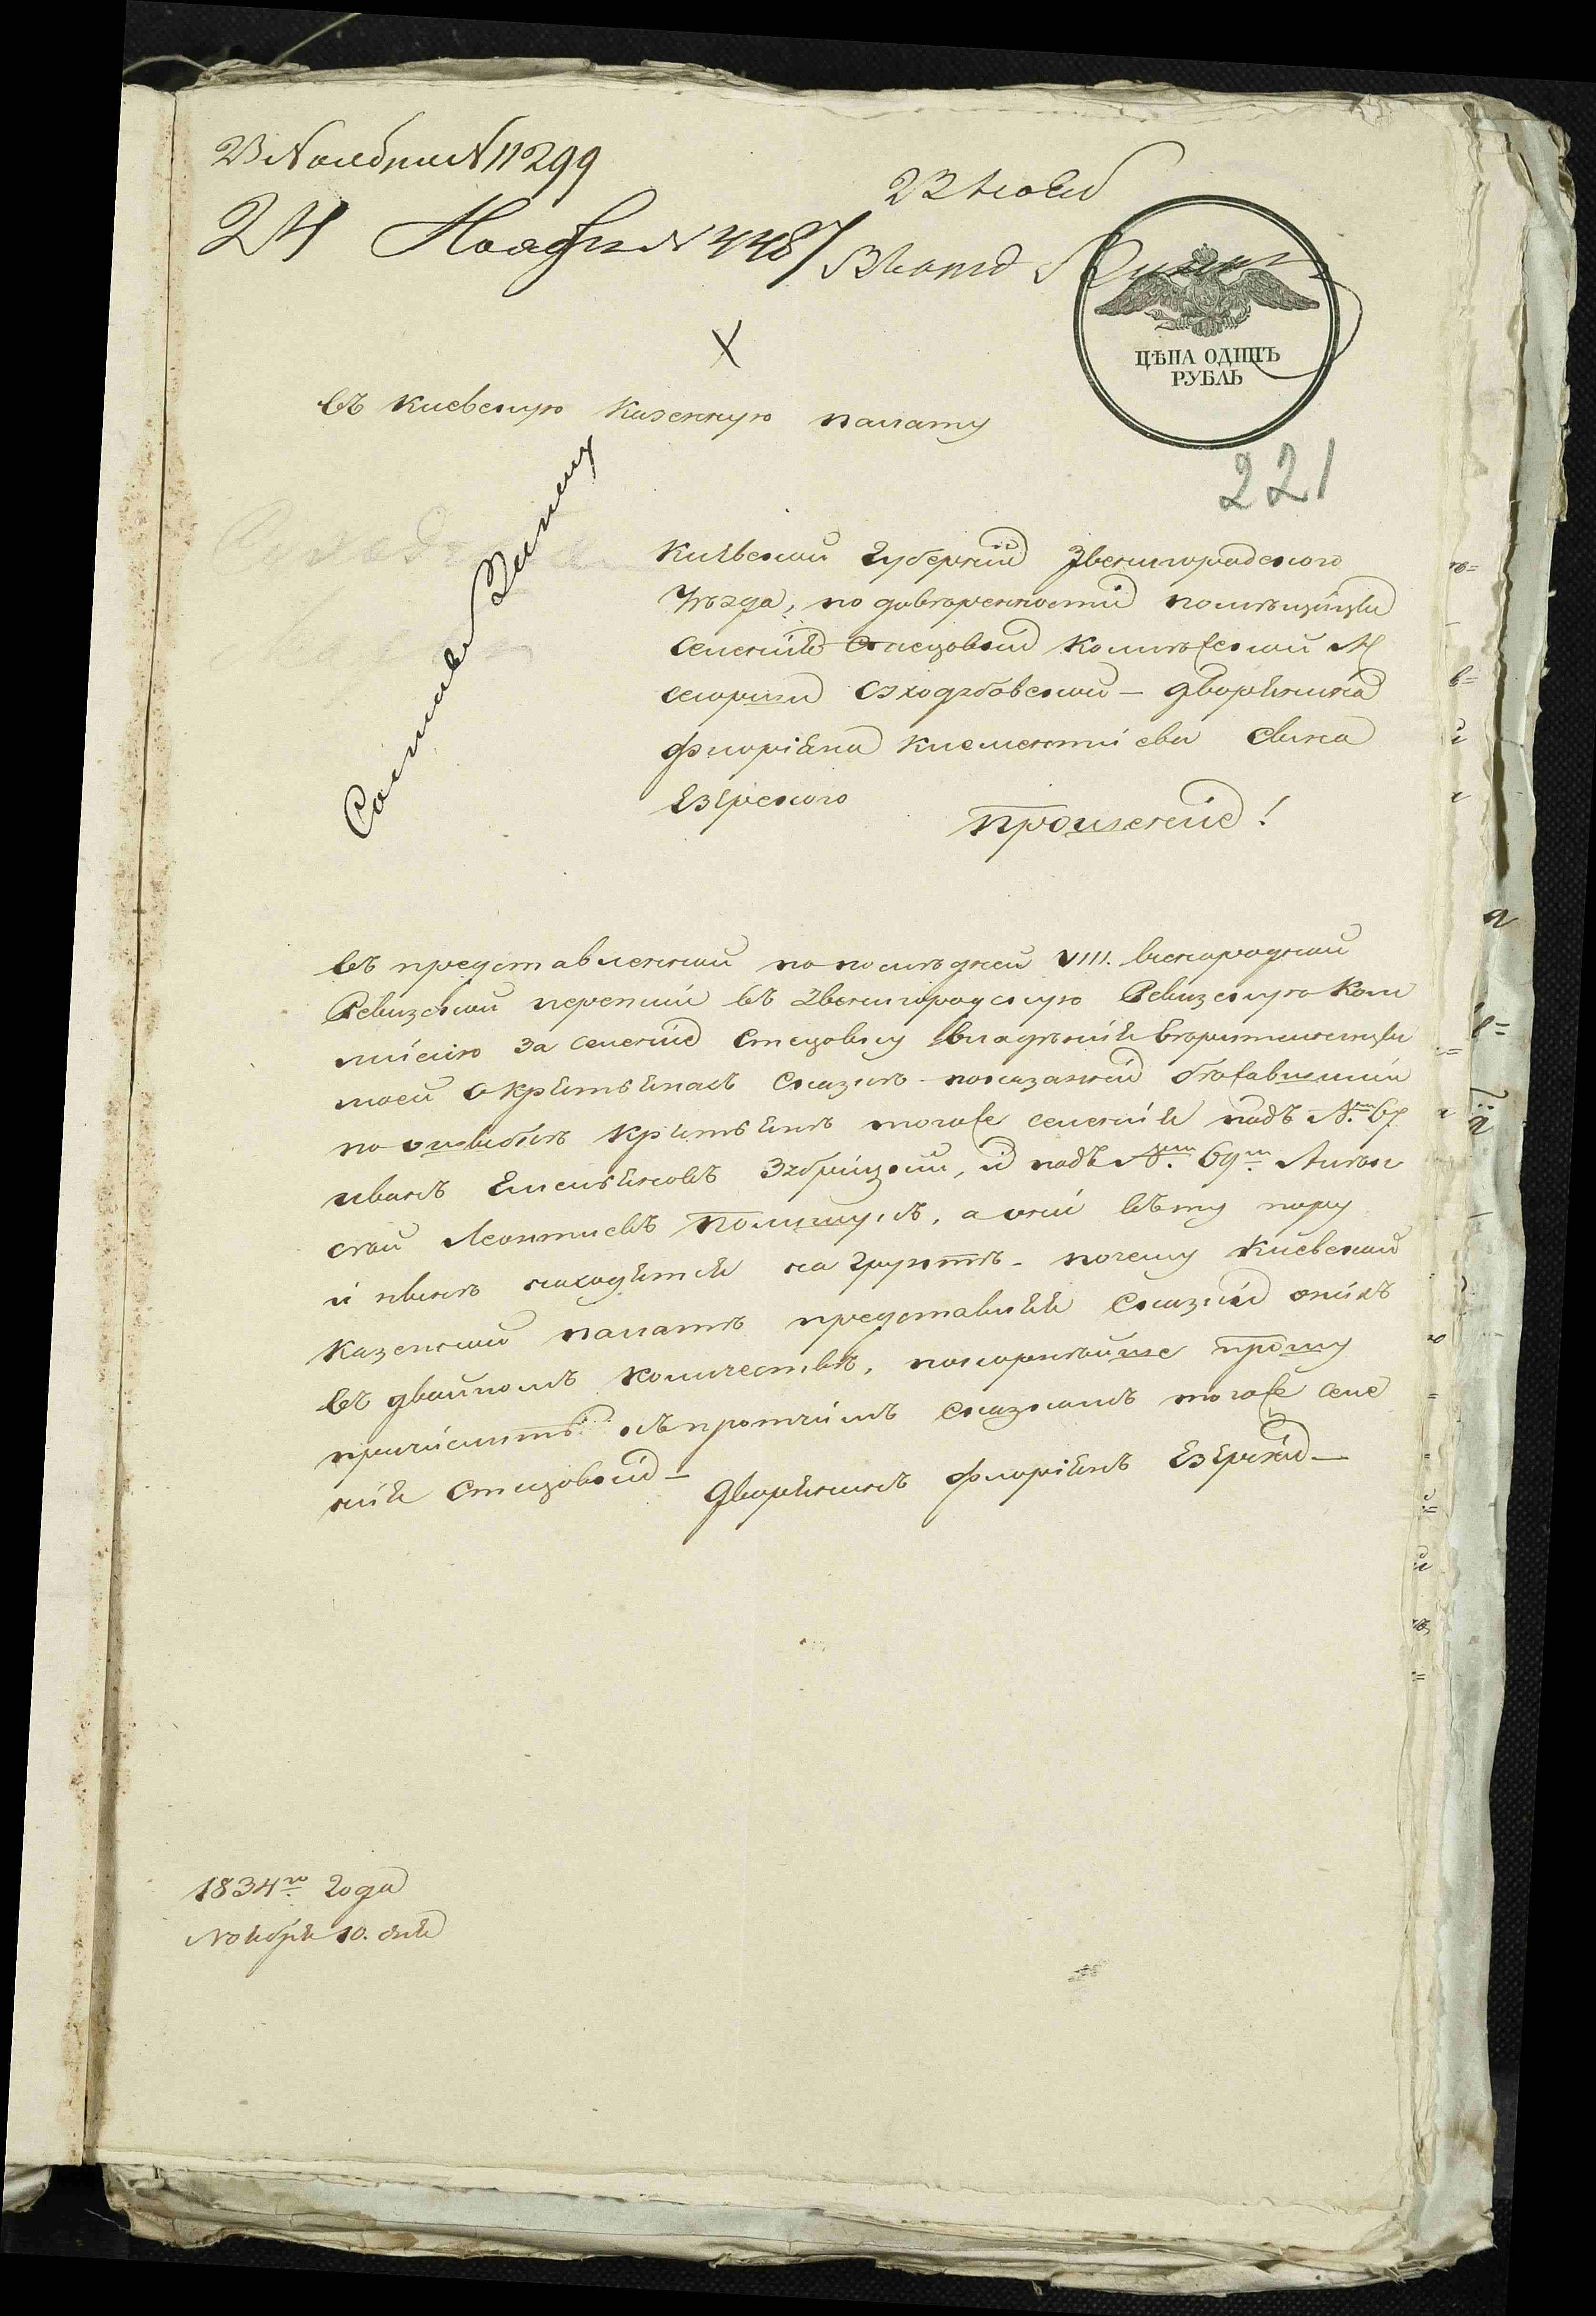 23 Ноября № 11299
24 Ноября № 4487
23 нояб
ЦѢНА ОДИНЪ
РУБЛЬ
въ Киевскую Казенную палату
221
Киявской Губерніи Звенигородского
Уѣзда, по довѣренности помѣщицы
селенія Стецовки
дворянина
Флоріяна Клементіева сына
Езерского
Прошеніе!
въ представленной по послѣдней VIII. всенародной
Ревизской переписи въ Звенигородскую Ревизскую Ком
мисію за селеніе Стецовку владѣнія вѣрительницы
моей о крѣстьянахъ сказкѣ показаніи
по ошибкѣ крѣстьянѣ тогоже селенія подъ № 67
иванъ Емельяновъ, и подъ № 69 Антон
ской Леонтіевъ Полищукъ, а они въ ту пору
и нынѣ находятся на грунтѣ. почему Киевской
Казенной палатѣ представляя сказки оніхъ
въ двойномъ количествѣ, покорнѣйше прошу
причислить къ протчимъ сказкамъ тогоже селе
нія Стецовки —
Дворянинъ Флоріянъ Езерскій —
1834го Года
Ноября 10. дня